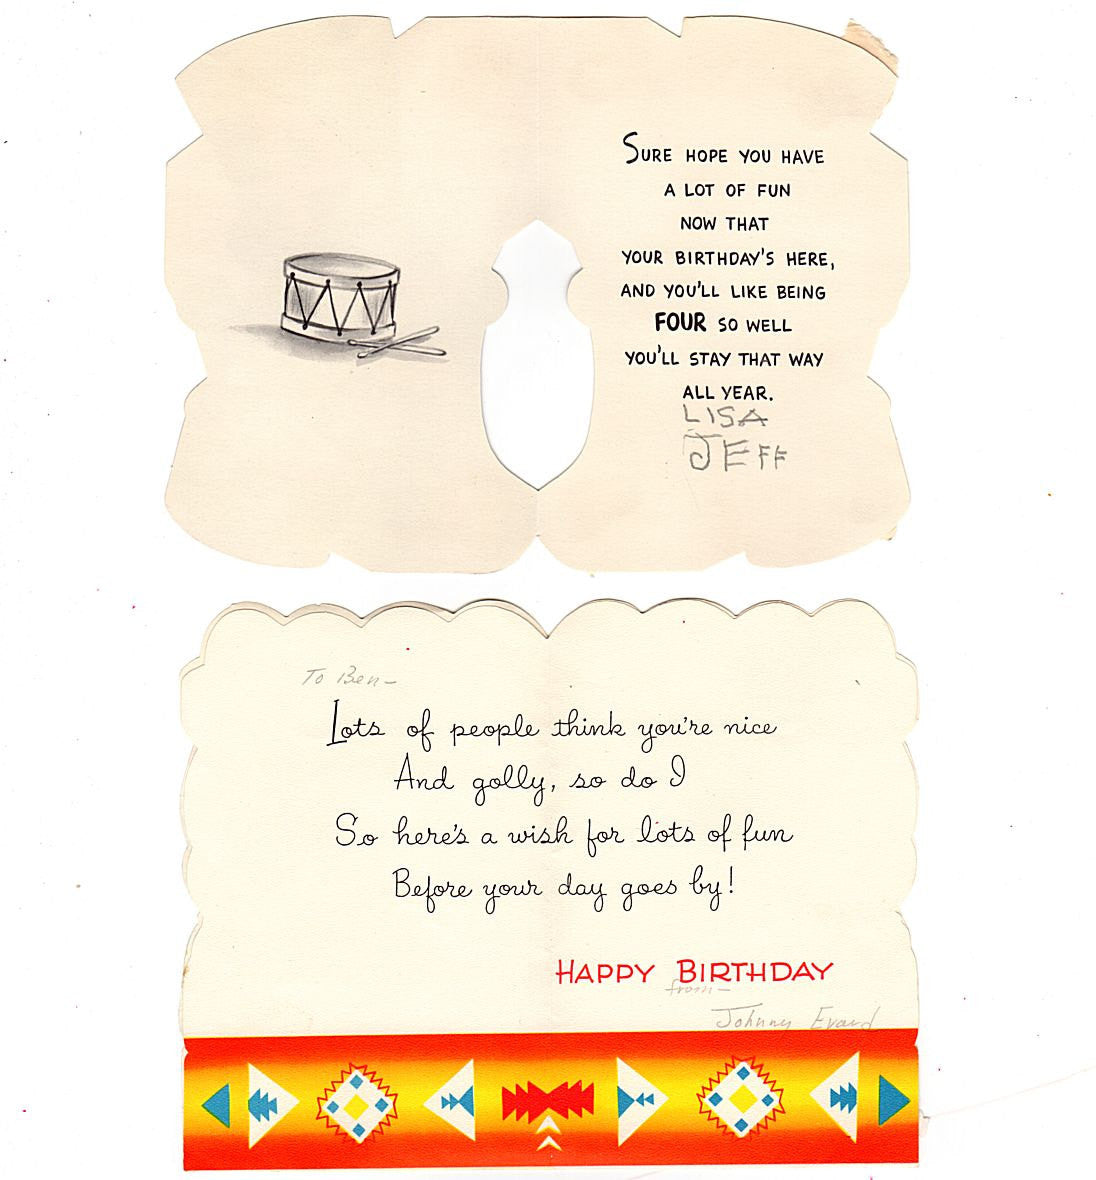 SURE HOPE YOU HAVE
A LOT OF FUN
NOW THAT
YOUR BIRTHDAY'S HERE,
AND YOU'LL LIKE BEING
FOUR SO WELL
YOU'LL STAY THAT WAY
ALL YEAR.
LISA
JEFF
To Ben-
Lots of people think you're nice
And golly, so do I
So here's a wish for lots of fun
Before your day goes by!
HAPPY BIRTHDAY
from-
Johnny Evard